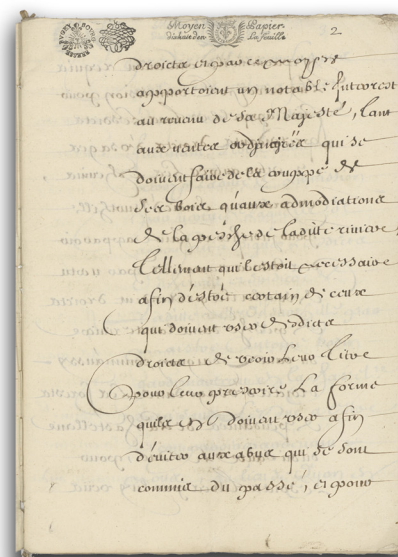 Moyen Papier
dix huit den. La feuille
2
droicts et par ce moyen
apportoient un notable Interest
au revenu de sa Majesté, tant
aux ventes ordinaires qui se
doivent faire de la couppe de
ses bois quaux admodiations
de la pesche de ladite riviere,
Tellement quil estoit necessaire
afin destre certain de ceux
qui doivent user desdicts
droicts de veoir leur tiltre
pour leur prescrire La forme
quils en doivent user afin
déviter aux abus qui se sont
commis du passé, et pour